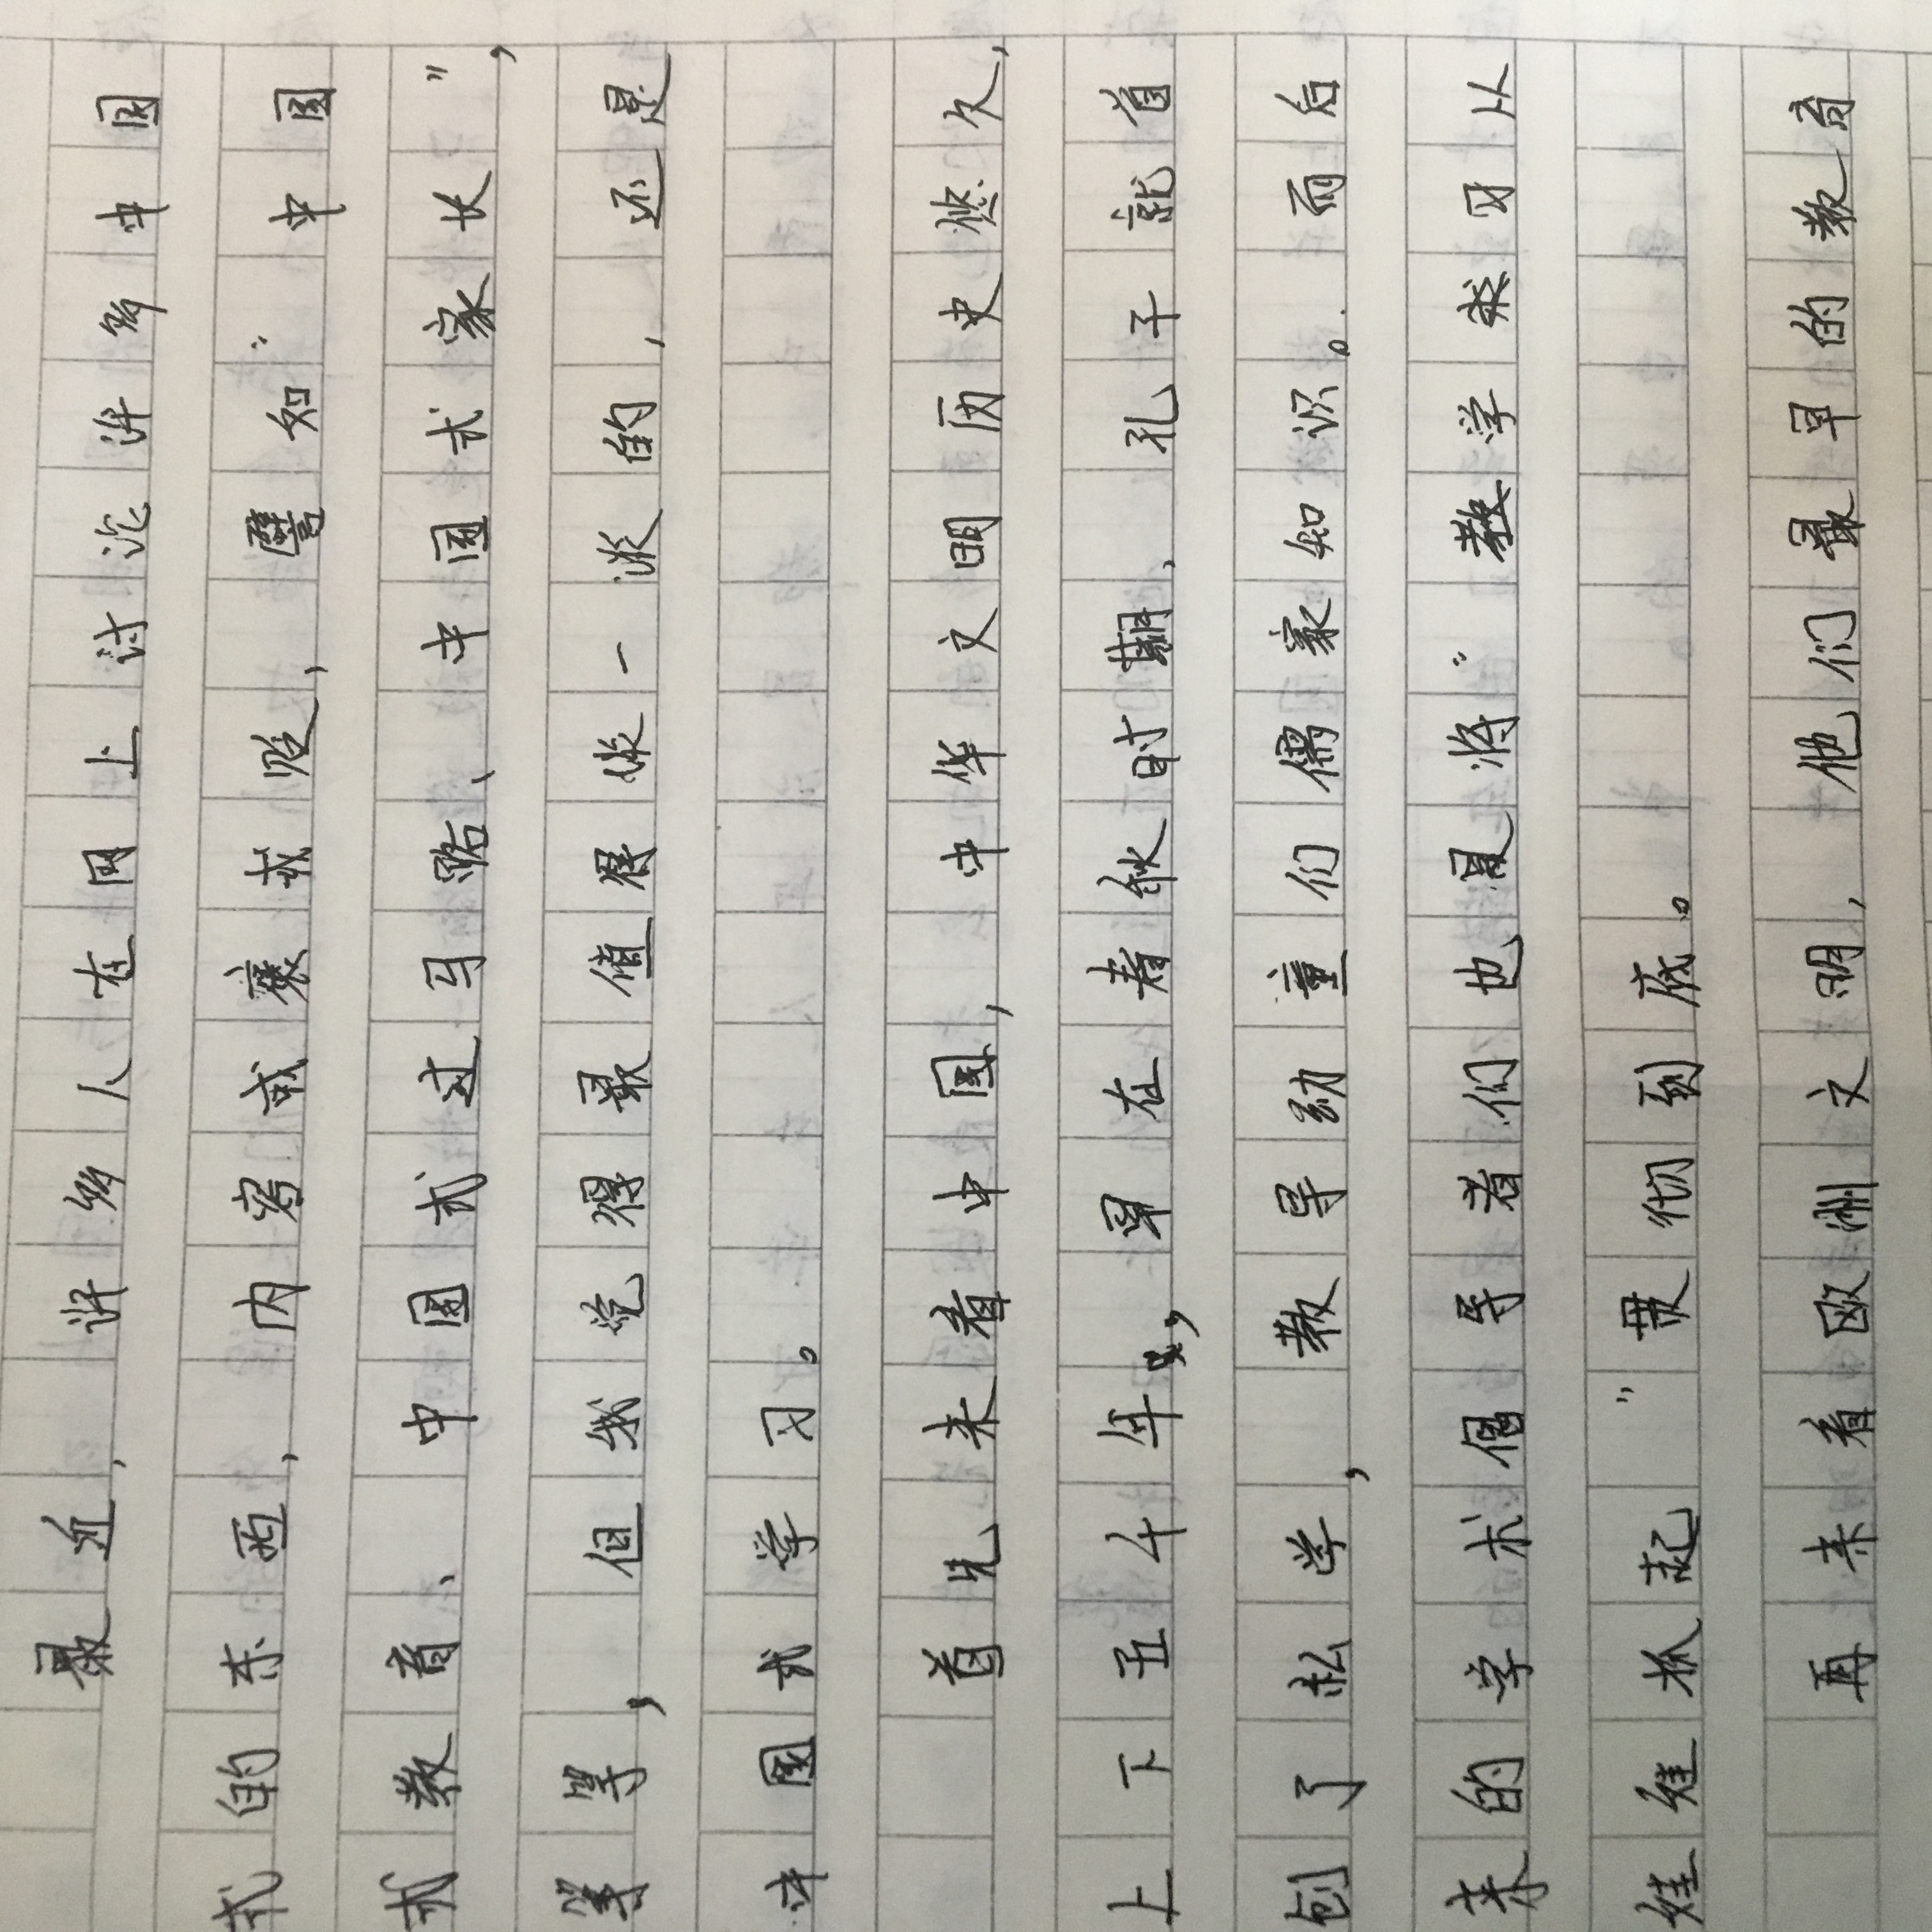 最近，许多人在网上讨论许多中国
式的东西，内容或褒或贬，譬如“中国
式教育、中国式过马路、中国式家长”，
等等，但我觉得最值得一派的，还是
中国式学习。
首先来看中国，中华文明历史悠久，
上下五千年，早在春秋时期，孔子就首
创了私学，教导幼童们儒家知识。而后
来的学术倡导者们也是将“教学类习从
娃娃抓起”贯彻到底。
再来看欧洲文明，他们最早的教育